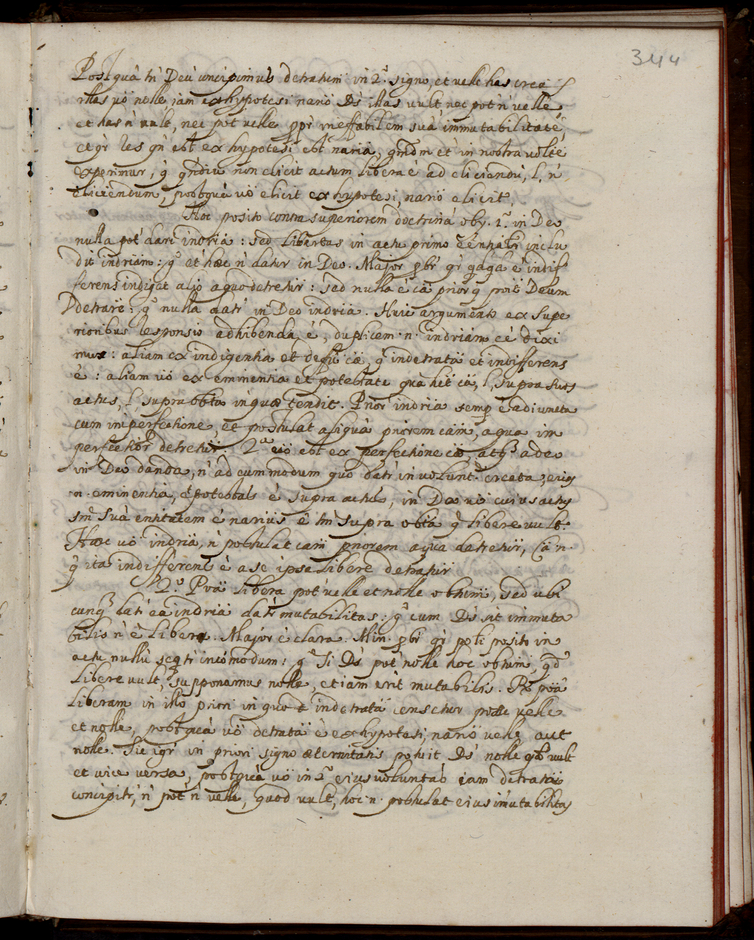 344
Postquā tñ Deū concipimus detratum in 2.º signo, et velle has crea
illas vò nolle iam ex hypotesi nariò Ds illas vult nec pot ñ velle
et has ñ vult, nec pot velle ppr ineffabilem suā immutabilitatē,
et ex hypotesi est naria, et in nostra volte
experimur, non elicit actum liberū ē ad eliciendū, l, ñ
eliciendum, postquā vò elicit ex hypotesi, nariò elicit.
Hoc posito contra superiorem doctrinā obij. 1.º in Deo
nulla pot dari indria: sed libertas in actu primo inclu
dit indriam: gº et hæc ñ datur in Deo. Major pbr qr indif
ferens indiget aliò a quo detretur: sed nulla ē cā prior q poss Deum
detrare: gº nulla datr in Deo indria. Huic argumento ex supe
rioribus responsio adhibenda ē, duplicem .n. indriam eē dixi
mus: aliam ex indigentia et cæ, q indetratā et indifferens
ē: aliam vò ex eminentia et potestate quā het cā, l, supra suos
actus, l, supra obta in quæ tendit. Prior indria semp ē adiuncta
cum imperfectione, et postulat aliquā priorem cām, a qua im
perfectior detretur: 2.ª vò est ex perfectione et atq adeo
in Deo danda, ñ ad eum modum quo datr in volunt creata, cuius
.n. eminentia, et potestas ē supra actū, in Deo vò cuius actus
sm suā entitatem ē narius ē tñ supra obtā q libere vult.
Hæc vò indriā, ñ postulat cām priorem a qua detretur, cā .n.
q ita indifferens ē a se ipsa libere detratur.
2.º Pōā libera pot velle et nolle obtum, sed ubi
cunq datr ea indria datr mutabilitas: gº cum Ds sit immuta
bilis ñ ē liber. Major ē clara. Min. pbr qr poti posito in
actu nullū seqtr incōmodum: gº si Ds pot nolle hoc obtum, qd
libere vult, supponamus nolle, et iam erit mutabilis. Rº pōā
liberam in illo priori in quo ē indetratā censetur posse velle
et nolle, postquā vò detratā ē ex hypotesi, nariò velle aut
nolle. Sic igr in priori signo æternitatis potuit Ds nolle qd vult
et vice versa, postquā vò in 2.º eius voluntas iam detratā
concipitr, ñ pot ñ velle, quod vult, hoc .n. postulat eius imutabilitas